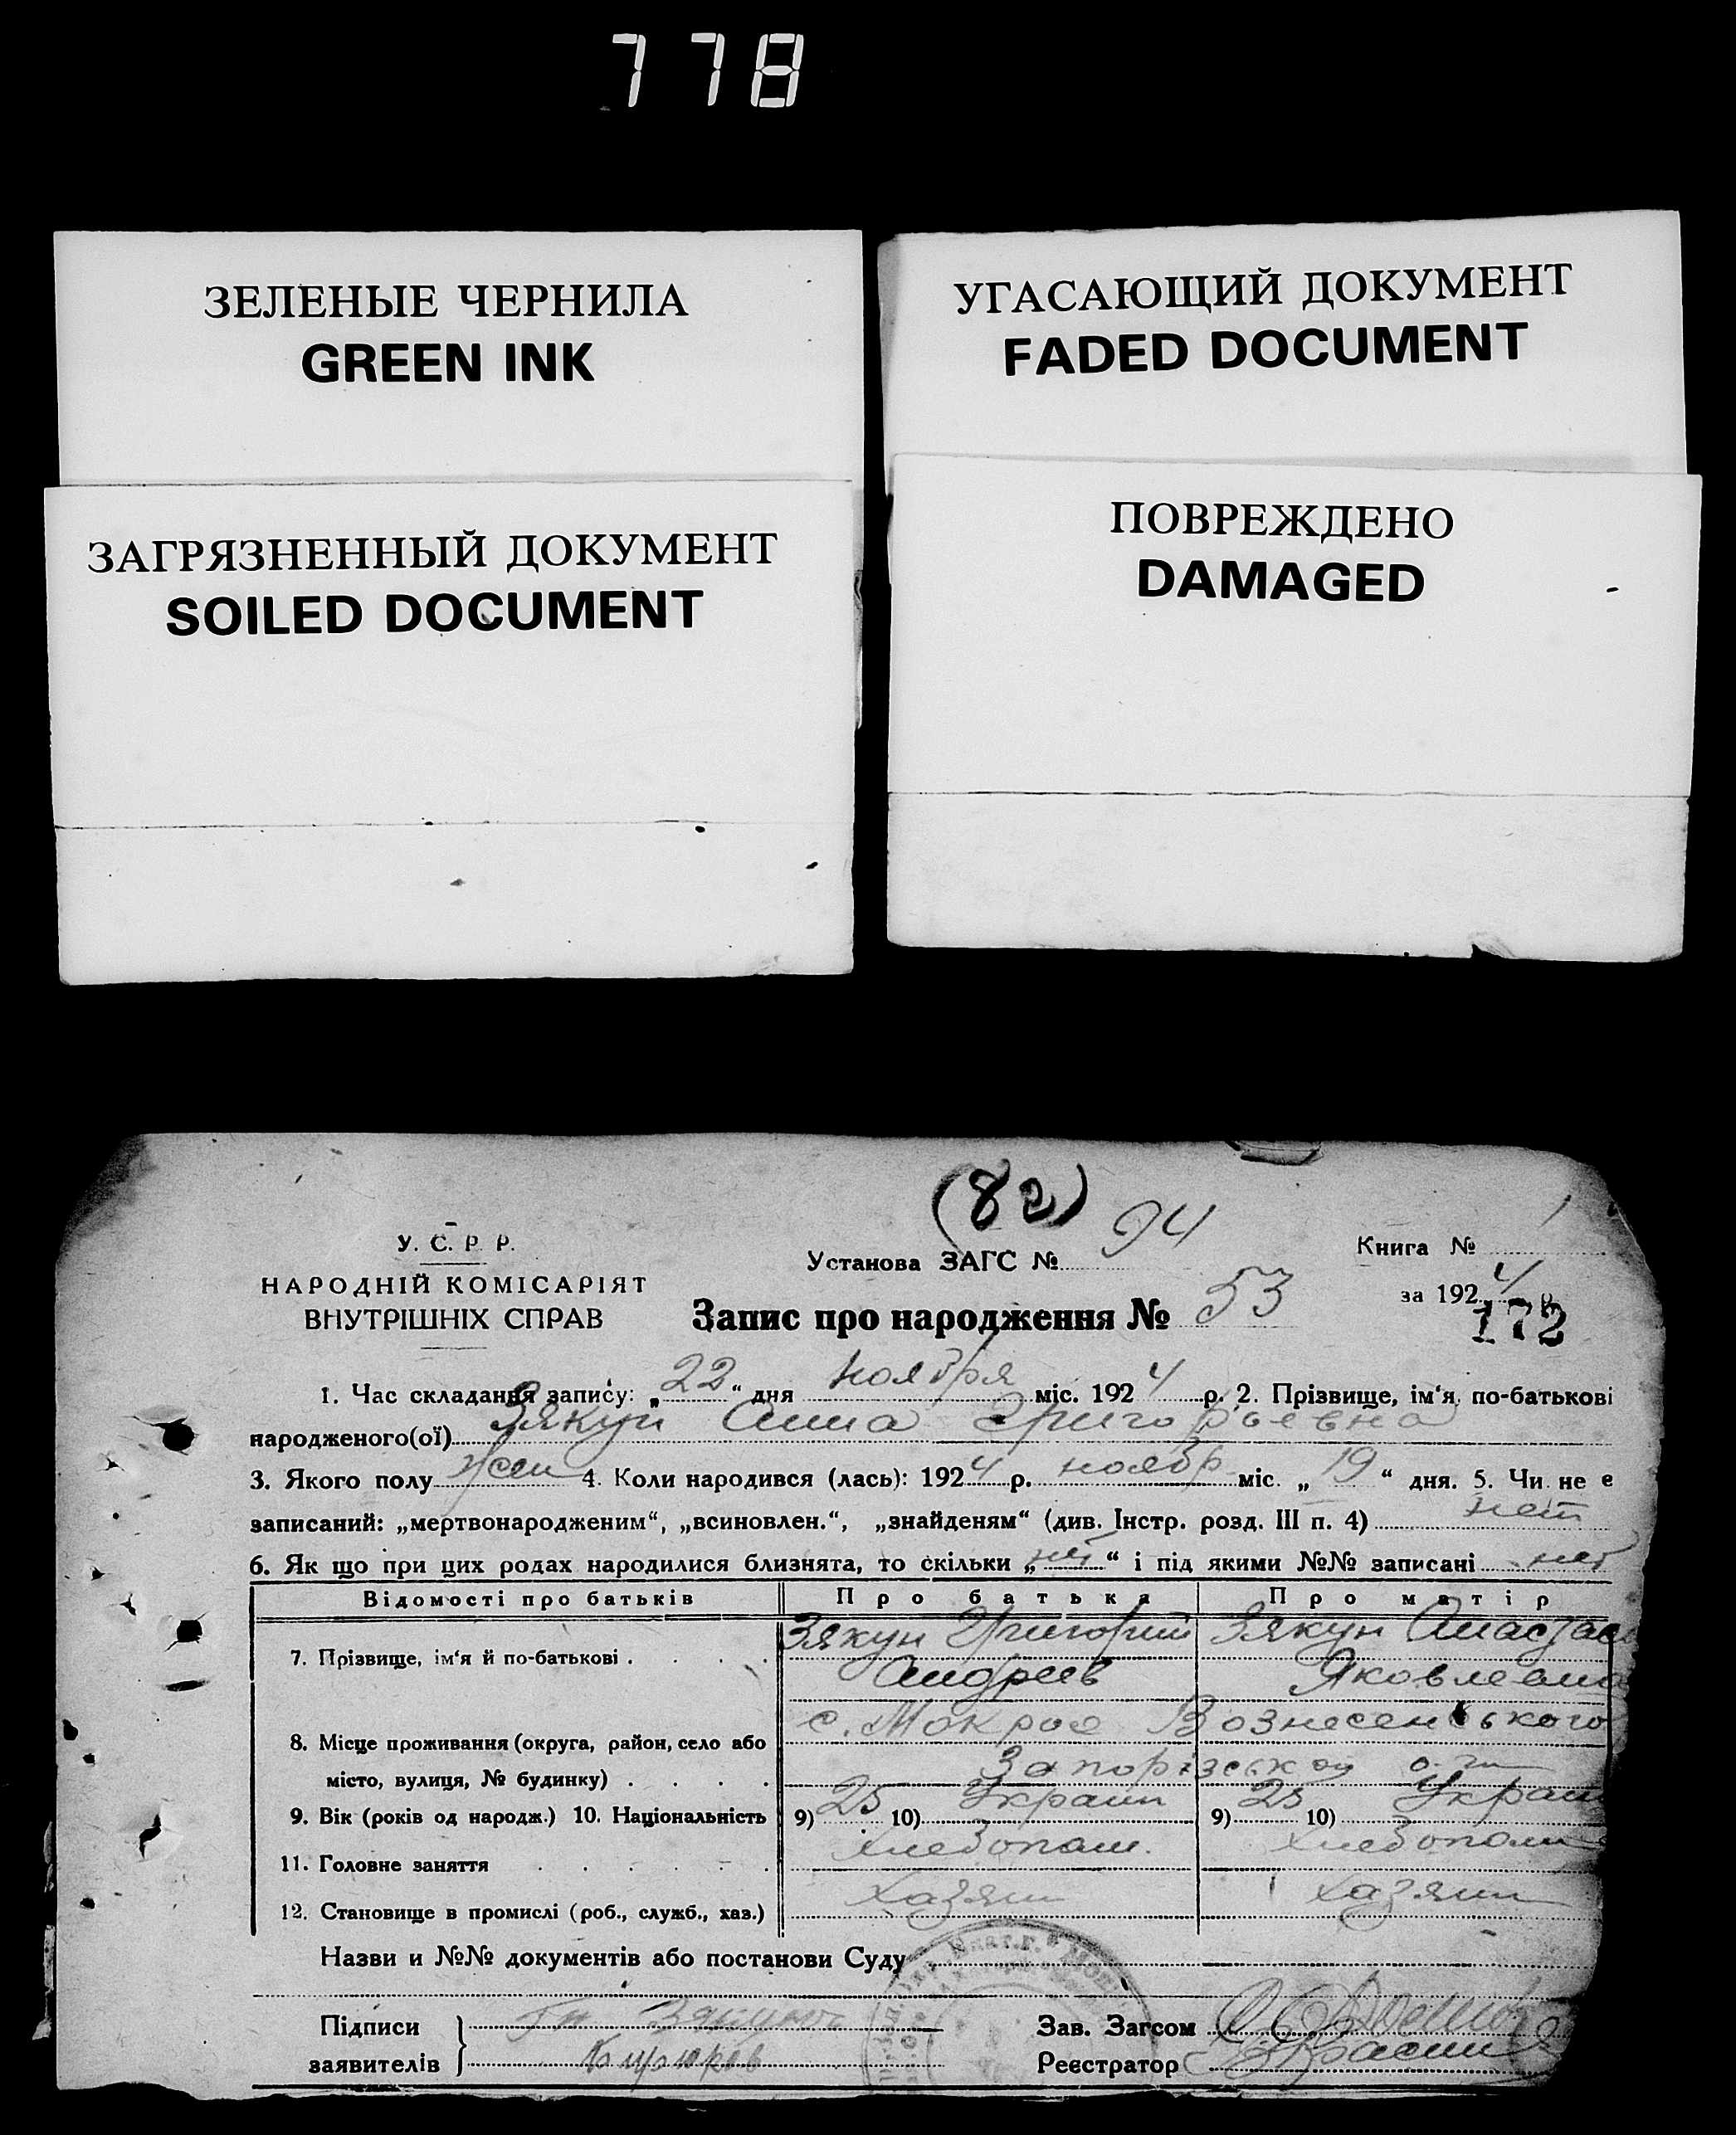 778
ЗЕЛЕНЫЕ ЧЕРНИЛА
GREEN INK
УГАСАЮЩИЙ ДОКУМЕНТ
FADED DOCUMENT
ЗАГРЯЗНЕННЫЙ ДОКУМЕНТ
SOILED DOCUMENT
ПОВРЕЖДЕНО
DAMAGED
(82)
У. С. Р. Р.
НАРОДНІЙ КОМІСАРІЯТ
ВНУТРІШНІХ СПРАВ
Установа ЗАГС № 94
Книга №
за 1924 р.
172
Запис про народження № 53
1. Час складання запису: „22“ дня ноября міс. 1924 р. 2. Прізвище, ім‘я, по-батькові
народженого(ої) Зякун Анна Григорьевна
3. Якого полу жен 4. Коли народився (лась): 1924 р. ноябр міс. „19“ дня. 5. Чи не є
записаний: „мертвонародженим“, „всиновлен.“, „знайденям“ (див. Інстр. розд. III п. 4) нет
6. Як що при цих родах народилися близнята, то скільки „нет“ і під якими №№ записані нет
Відомості про батьків Про батька Про матір
7. Прізвище, ім‘я й по-батькові . . . . Зякун Григорий Зякун
Андреев Яковлевна
8. Місце проживання (округа, район, село або с. Мокрое Вознесенського
місто, вулиця, № будинку) . . . . Запорізськой
9. Вік (років од народж.) 10. Національність 9) 25 10) Украин 9) 25 10) Украин
11. Головне заняття . . . . . . хлебопаш. хлебопаш
12. Становище в промислі (роб., служб., хаз.) хазяин хазяин
Назви и №№ документів або постанови Суду
Підписи
заявителів
Зав. Загсом
Реєстратор